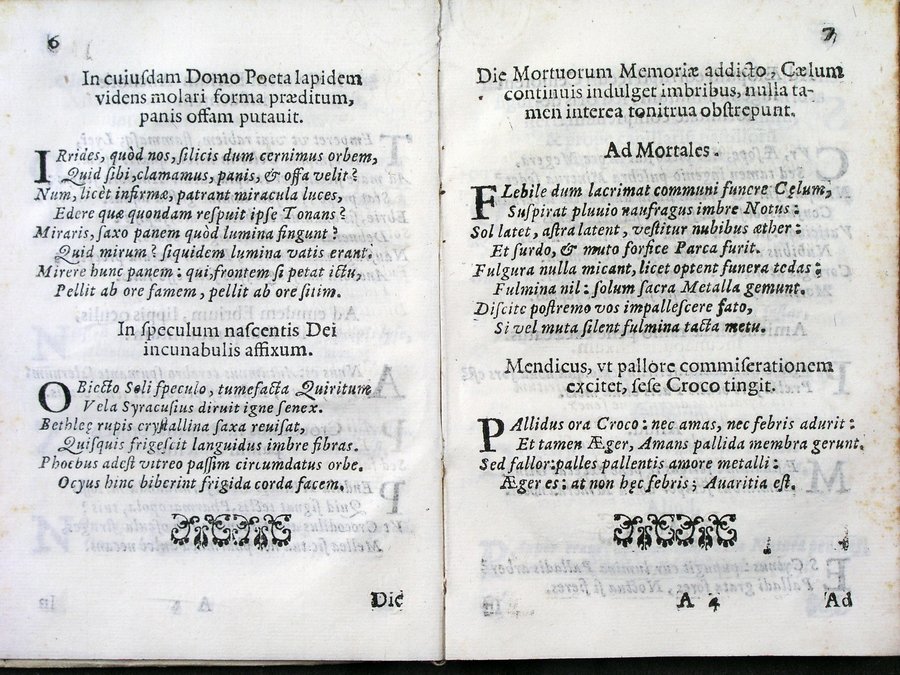 6
In cuiuſdam Domo Poeta lapidem
videns molari forma præditum,
panis offam putauit.
IRrides, quòd nos, ſilicis dum cernimus orbem,
Quid ſibi, clamamus, panis, & offa velit?
Num, licèt infirmæ, patrant miracula luces,
Edere quæ quondam reſpuit ipſe Tonans?
Miraris, ſaxo panem quòd lumina fingunt?
Quid mirum? ſiquidem lumina vatis erant.
Mirere hunc panem: qui, frontem ſi petat ictu,
Pellit ab ore famem, pellit ab ore ſitim.
In ſpeculum naſcentis Dei
incunabulis affixum.
OBiecto Soli ſpeculo, tumefacta Quiritum
Vela Syracuſius diruit igne ſenex.
Bethleę rupis cryſtallina ſaxa reuiſat,
Quiſquis frigeſcit languidus imbre fibras.
Phoebus adeſt vitreo paſſim circumdatus orbe.
Ocyus hinc biberint frigida corda facem.
Die
7
Die Mortuorum Memoriæ addicto, Cælum
continuis indulget imbribus, nulla ta-
men interea tonitrua obſtrepunt.
Ad Mortales.
FLebile dum lacrimat communi funere Cęlum,
Suſpirat pluuio naufragus imbre Notus:
Sol latet, aſtra latent, veſtitur nubibus æther:
Et ſurdo, & muto forfice Parca furit.
Fulgura nulla micant, licet optent funera tedas:
Fulmina nil: ſolum ſacra Metalla gemunt.
Diſcite poſtremo vos impalleſcere fato,
Si vel muta ſilent fulmina tacta metu.
Mendicus, vt pallore commiſerationem
excitet, ſeſe Croco tingit.
PAllidus ora Croco: nec amas, nec febris adurit:
Et tamen Æger, Amans pallida membra gerunt.
Sed fallor: palles pallentis amore metalli:
Æger es: at non hęc febris; Auaritia eſt.
A 4 Ad